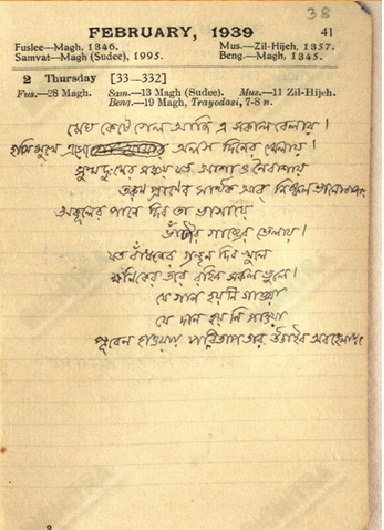 38
FEBRUARY, 1939 41
Fuslee—Magh, 1346. Mus.—Zil-Hijeh, 1357.
Samvat—Magh (Sudee), 1995. Beng.—Magh, 1345.
2 Thursday [33—332]
Fus.—28 Magh. Sam.—13 Magh (Sudee). Mus.—11 Zil-Hijeh.
Beng.—19 Magh, Trayodasi, 7-8 n.
মেঘ কেটে গেল আজি এ সকাল বেলায়।
হাসি মুখে এসো অলস দিনের খেলায়।
সুখ দুঃখের সঞ্চয় যত আশা ও নৈরাশায়
প্রাণের সার্থক আর নিষ্ফল
অকূলের পানে দিব তা ভাসায়ে
ভাঁটার গাঙের ভেলায়।
যত বাঁধনের গ্রন্থন দিব খুলে
ক্ষণিকের তরে রহিব সকল ভুলে।
যে গান হয় নি গাওয়া
যে দান হয় নি পাওয়া
পূবেন হাওয়ায় পরিতাপ তার উড়াইব অবহেলায়